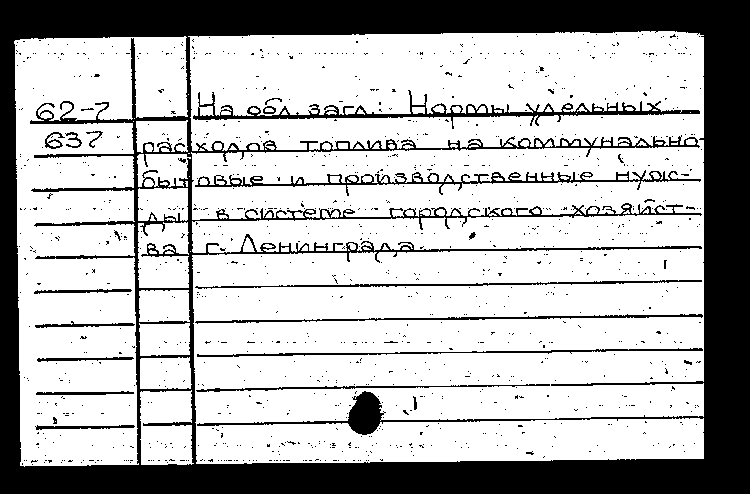 62-7 На обл. загл.: Нормы удельных
637 расходов топлива на коммунально-
бытовые и производственные нуж-
ды в системе городского хозяйст-
ва г. Ленинграда